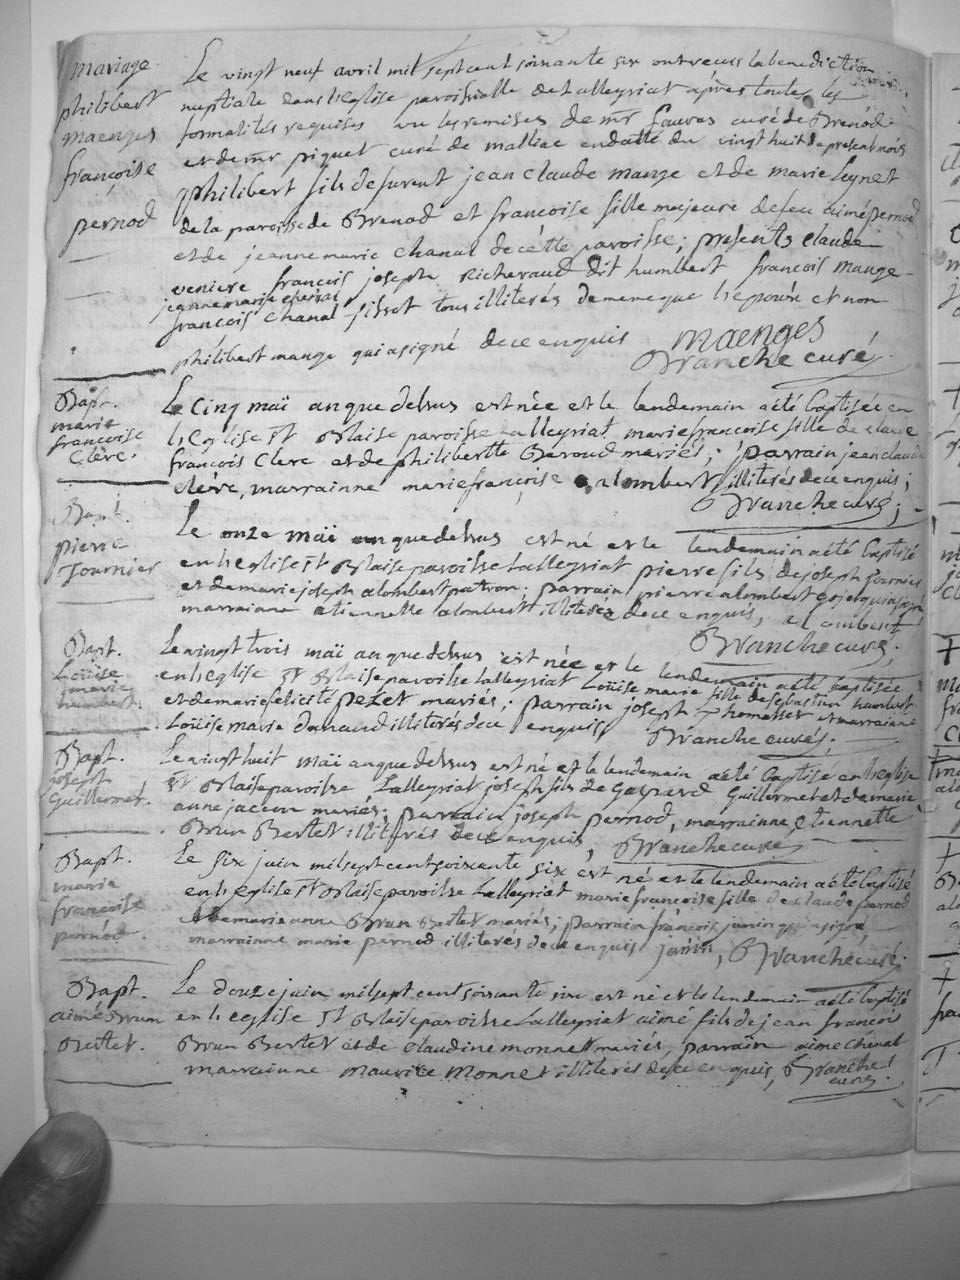 mariage
philibert
maenges
françoise
pernod
Le vingt neuf avril mil sept cent soixante six ont recus la benediction
nuptiale dans l'eglise paroissialle de Lalleyriat après toutes les
formalités requises vu les remises de mr fauvas curé de Brenod
et de mr piquet curé de malliac en datte du vingt huit de present mois
philibert fils de furent jean claude mange et de marie Leynet
de la paroisse de Brenod et francoise fille majeure de feu aimé pernod
et de jeanne marie chanal de cette paroisse; presents claude
veniere françois joseph Richeraud dit humbert françois mange
jeanne marie chanal
françois chanal tous illiterés de meme que l'epouse et non
philibert mange qui a signé de ce enquis maenges
Branche curé
Bapt.
marie
françoise
Clerc.
Le cinq maï an que dessus est née et le lendemain a été baptisée en
l'Eglise st Blaise paroisse Lalleyriat, marie francoise fille de claude
françois Clerc et de philibertte Beroud mariés; parrain jean claude
Clerc, marrainne marie françoise alombert, illiterés de ce enquis;
Branche curé;
Bapt.
pierre
Journier
Le onze maï an que dessus est né et le lendemain a été baptisé
en l'eglise st Blaise paroisse Lalleyriat pierre fils de joseph fournier
et de marie joseph alombert patron; parrain pierre alombert goget qui a signé
marrainne etiennette alombert illiterée de ce enquis, alombert
Branche curé;
Bapt.
Loüise
marie
humbert.
Le vingt trois maï an que dessus est née et le lendemain a été baptisée
en l'eglise st Blaise paroisse Lalleyriat Loüise marie fille de sebastien humbert
et de marie felicité pezet mariés; parrain joseph thomasset et marraine
Loüise marie dunaud illiterés de ce enquis Branche curé;
Bapt.
joseph
Guillermet.
Le vingt huit maï an que dessus est né et le lendemain a été baptisé en l'eglise
st Blaise paroisse Lalleyriat joseph fils de Gaspard Guillermet et de marie
anne jacem mariés; parrain joseph pernod, marrainne etiennette
Brun Bertet illiterés de ce enquis, Branche curé
Bapt.
marie
françoise
pernod.
Le six juin mil sept cent soixante six est né et le lendemain a été baptisé
en l'eglise st Blaise paroisse Lalleyriat marie francoise fille de claude pernod
et de marie anne Brun Bertet mariés; parrain françois janin qui a signé
marrainne marie pernod illiterés de ce enquis janin, Branche curé.
Bapt.
aimé Brun
Bertet.
Le douze juin mil sept cent soixante six est né et le lendemain a été baptisé
en l'eglise st Blaise paroisse Lalleyriat aimé fils de jean françois
Brun Bertet et de claudine monnet mariés, parrain aimé chanal
marrainne maurice monnet illiterés de ce enquis, Branche
curé.